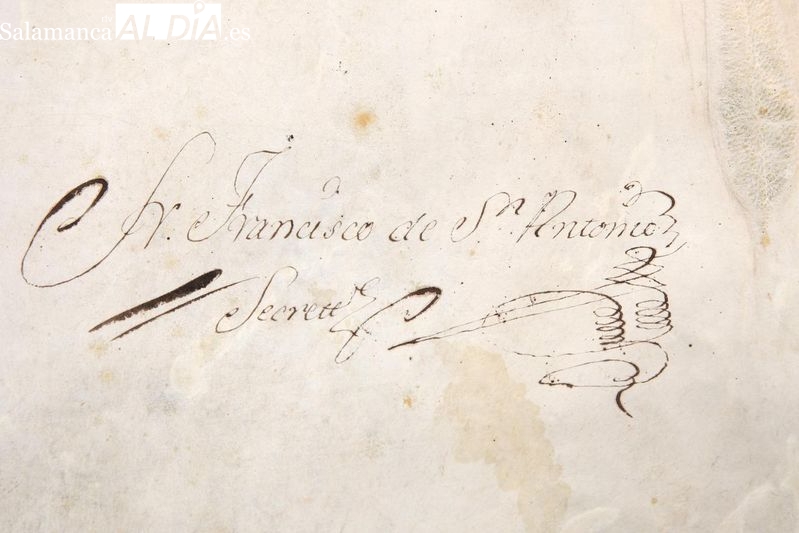 Salamanca AL DÍA.es
Fr. Francisco de Sn Antonio
Secrett